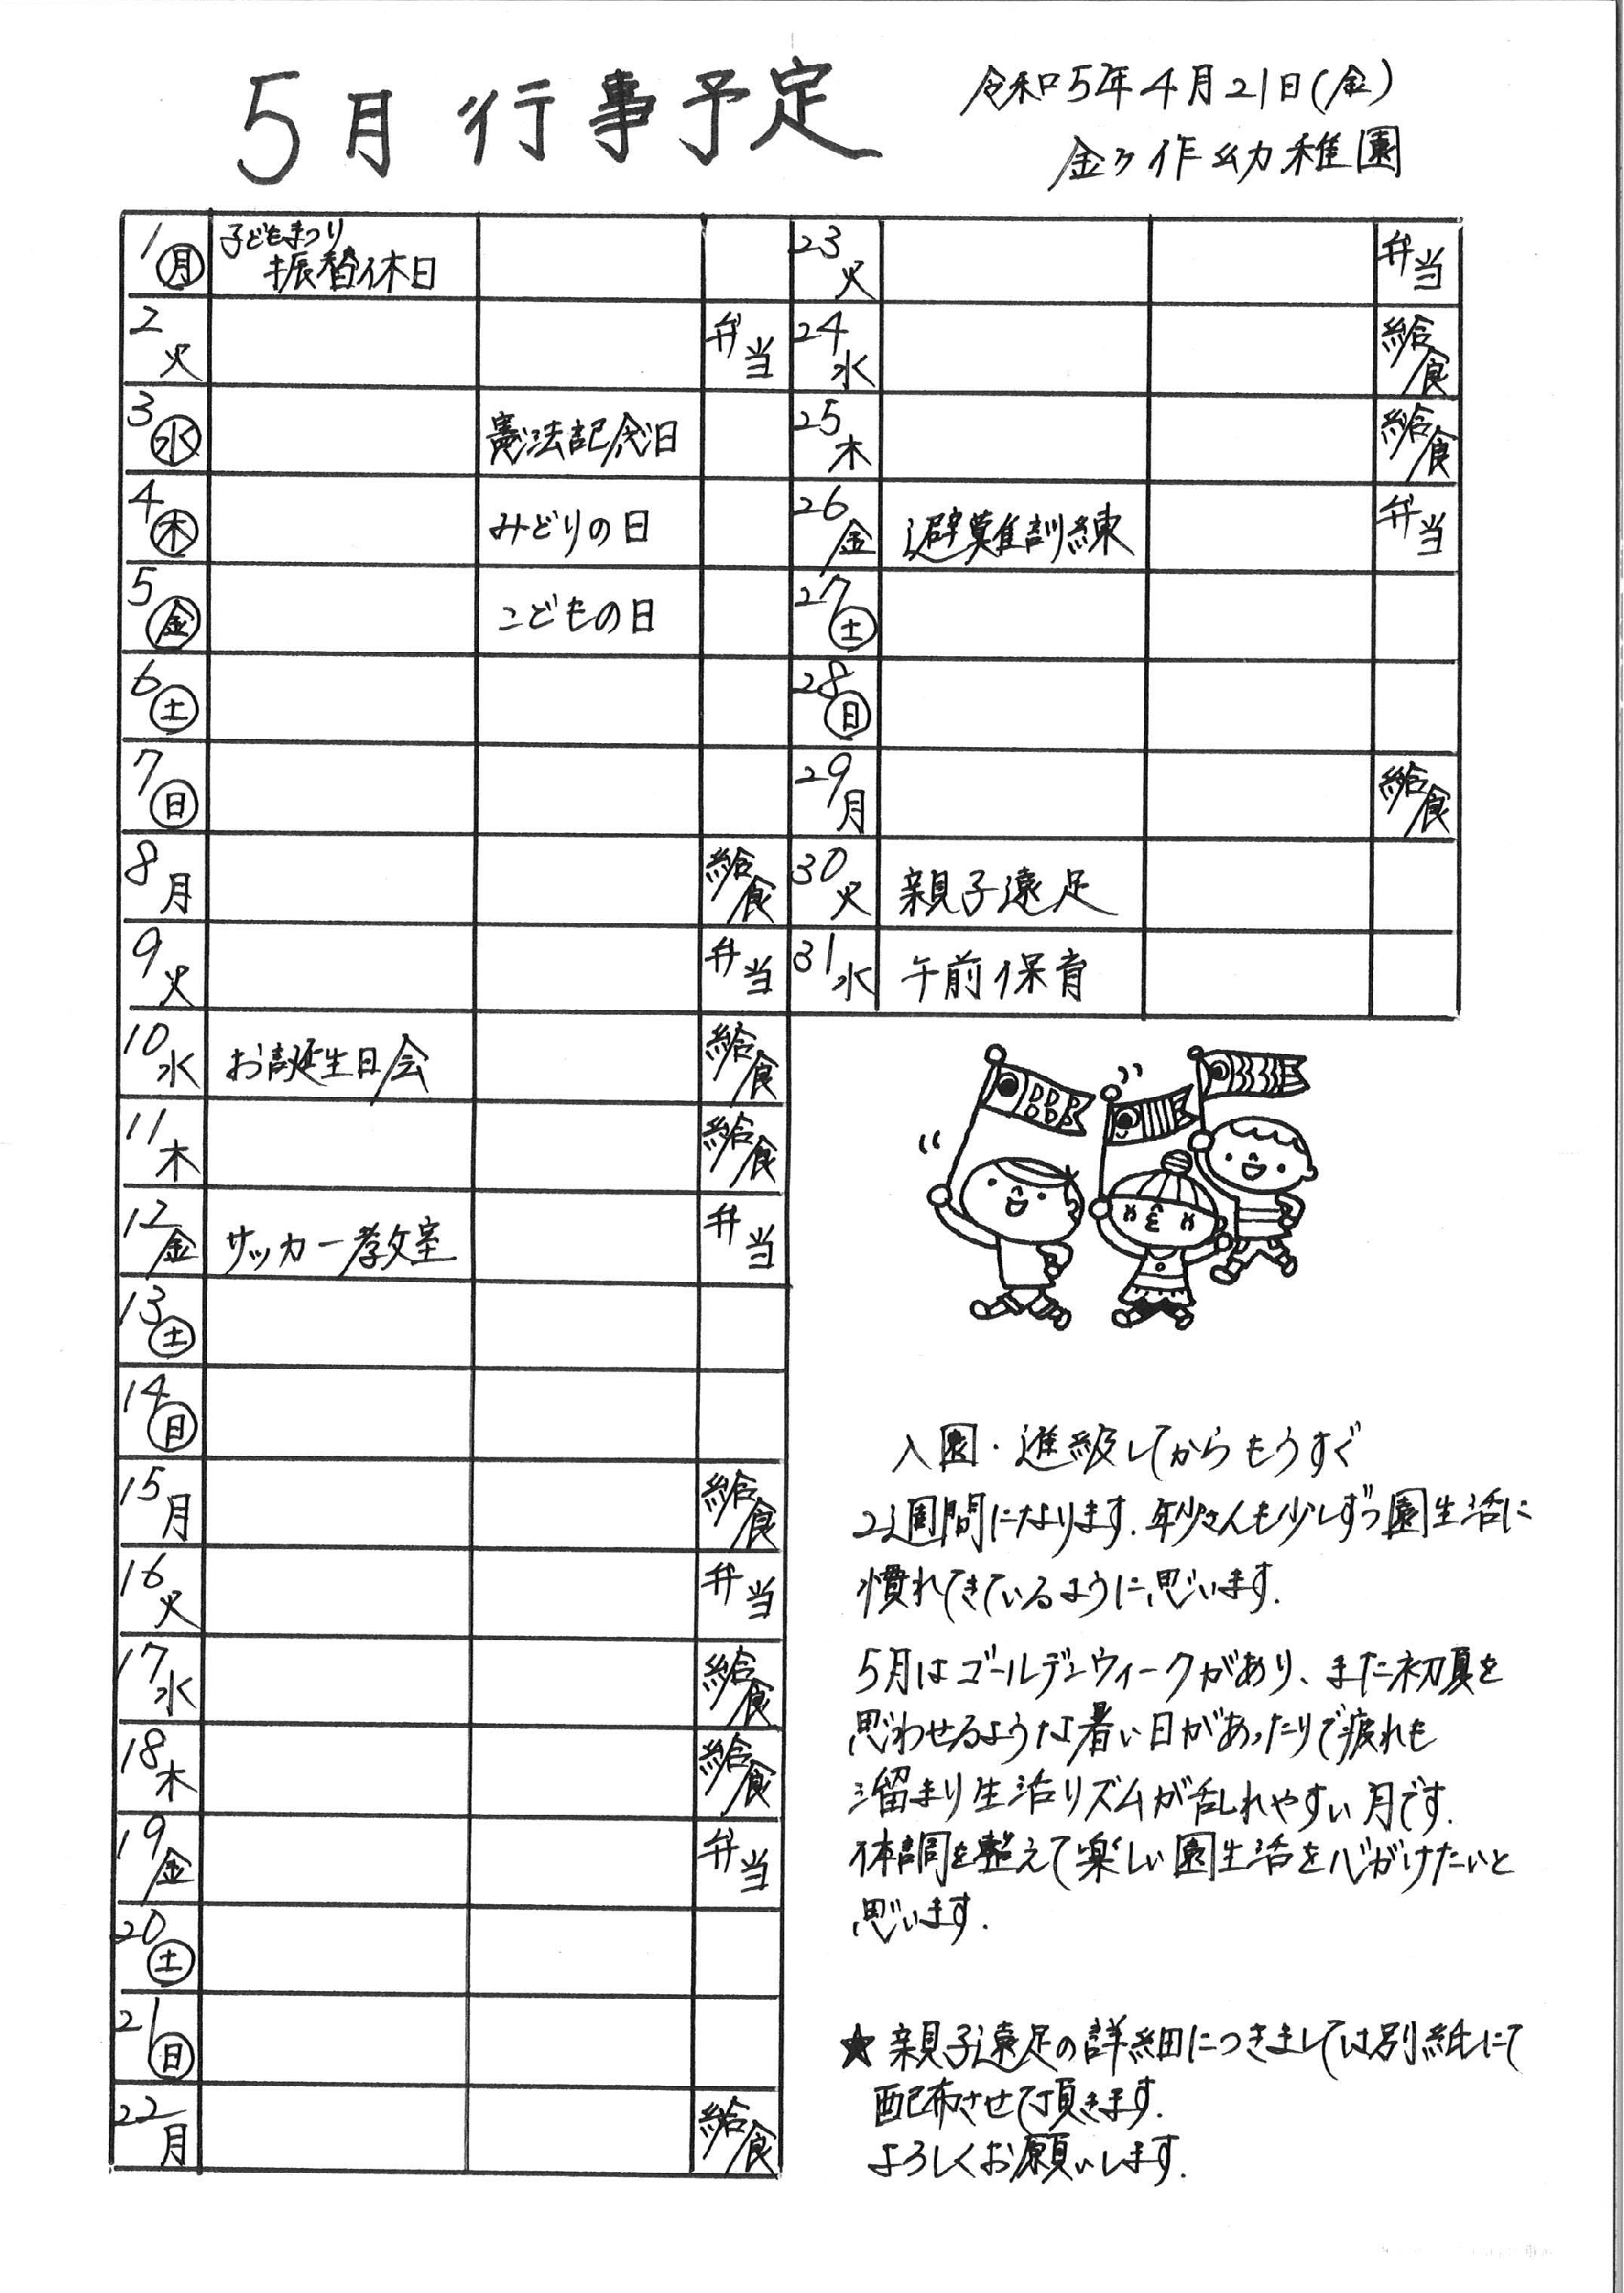 5月行事予定
令和5年4月21日(金)
金ヶ作幼稚園
1 月 子どもまつり
振替休日
2 火 弁当
3 水 憲法記念日
4 木 みどりの日
5 金 こどもの日
6 土
7 日
8 月 給食
9 火 弁当
10 水 お誕生日会 給食
11 木 給食
12 金 サッカー教室 弁当
13 土
14 日
15 月 給食
16 火 弁当
17 水 給食
18 木 給食
19 金 弁当
20 土
21 日
22 月 給食
23 火 弁当
24 水 給食
25 木 給食
26 金 避難訓練 弁当
27 土
28 日
29 月 給食
30 火 親子遠足
31 水 午前保育
入園・進級してからもうすぐ
2週間になります.年少さんも少しずつ園生活に
慣れてきているように思います.
5月はゴールデンウィークがあり、また初夏を
思わせるような暑い日があったりで疲れも
溜まり生活リズムが乱れやすい月です.
体調を整えて楽しい園生活を心がけたいと
思います.
★親子遠足の詳細につきましては別紙にて
配布させて頂きます.
よろしくお願いします.